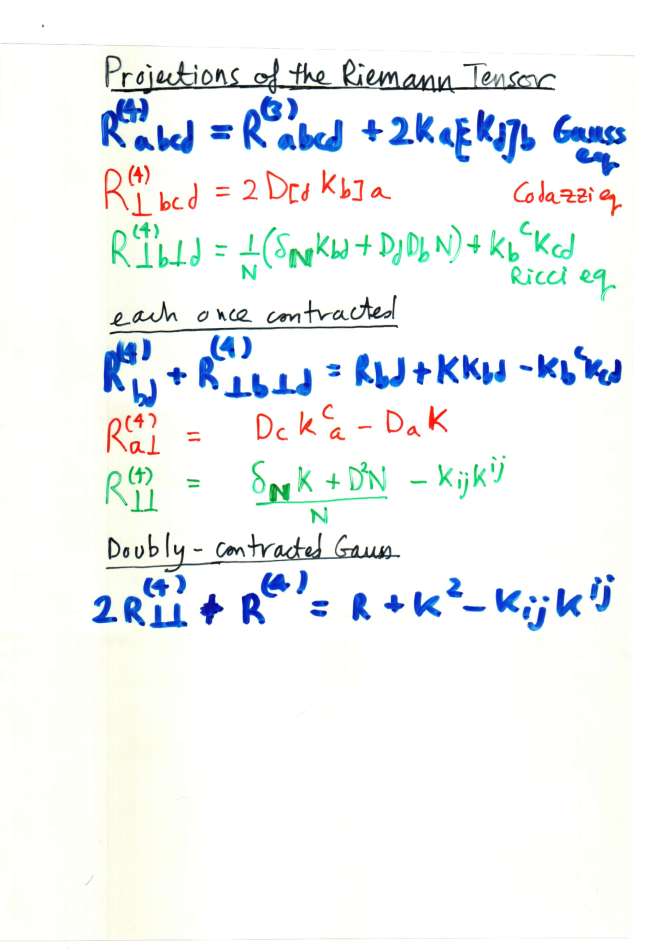 Projections of the Riemann Tensor
R^{(4)}_{abcd} = R^{(3)}_{abcd} + 2K_{a[c}K_{d]b} Gauss eq.
R^{(4)}_{⊥bcd} = 2D_{[d}K_{b]a} Codazzi eq
R^{(4)}_{⊥b⊥d} = 1/N (δ_N K_{bd} + D_d D_b N) + K_b^c K_{cd}
Ricci eq
each once contracted
R^{(4)}_{bd} + R^{(4)}_{⊥b⊥d} = R_{bd} + KK_{bd} - K_b^c K_{cd}
R^{(4)}_{a⊥} = D_c K^c_a - D_a K
R^{(4)}_{⊥⊥} = (δ_N K + D²N)/N - K_{ij}K^{ij}
Doubly-contracted Gauss
2R^{(4)}_{⊥⊥} + R^{(4)} = R + K² - K_{ij}K^{ij}